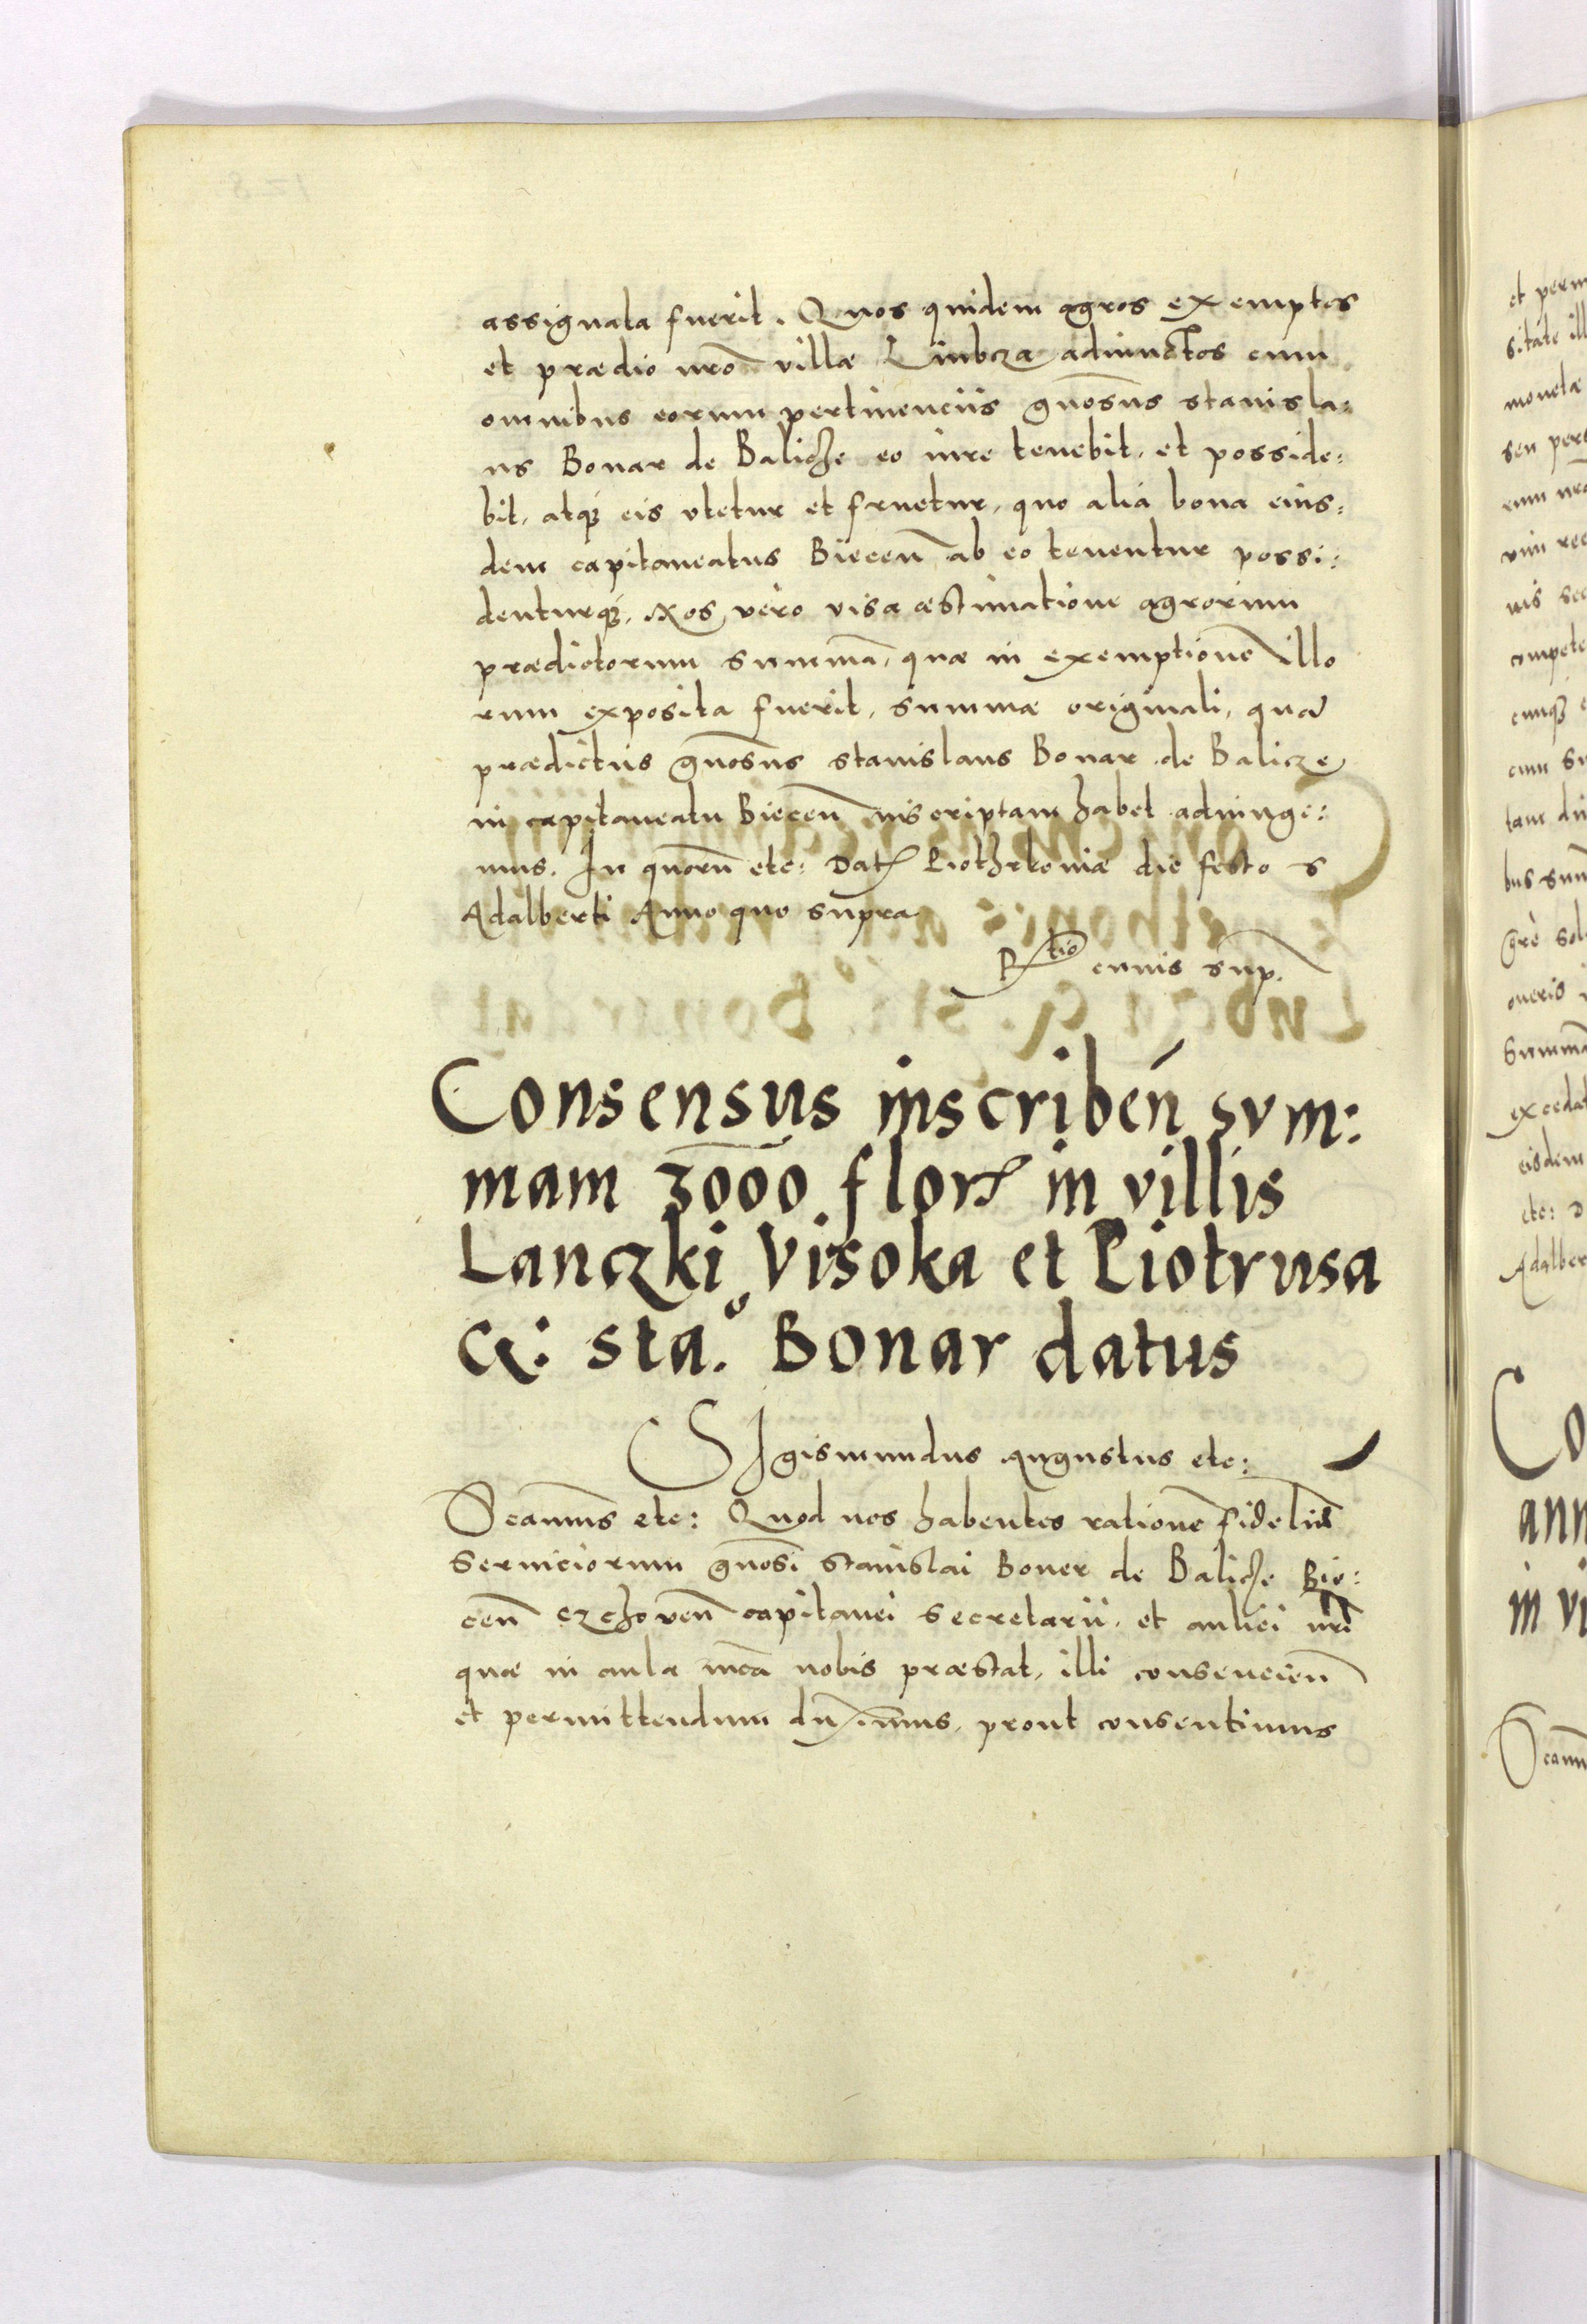 assignata fuerit. Quos quidem agros exemptos
et prædio nrō villæ Liubcza adiunctos cum
omnibus eorum pertinenciis gnosus Stanisla:
us Bonar de Balicze eo iure tenebit, et posside:
bit, atq3 eis vtetur et fruetur, quo alia bona eius:
dem capitaneatus Biecen̄ ab eo tenentur possi:
denturq3. Nos vero visa æstimatione agrorum
prædictorum summā, quæ in exemptione illo
rum exposita fuerit, summæ originali, quā
prædictus gnosus Stanislaus Bonar de Balicze
in capitaneatu Biecen̄ inscriptam habet adiunge:
mus. In quorū etc: Dat Piothrkoviæ die festo S
Adalberti Anno quo supra.
Rtio cuius sup.
Consensus inscriben̄ sum:
mam 3000 flor in villis
Lanczki Visoka et Piotrusa
G: Sta.o Bonar datus
SIgismundus Augustus etc:
Scamus etc: Quod nos habentes rationē fidelium
Serviciorum gnosi Stanislai Boner de Balicze Bie:
cen̄ Czchoven̄ capitanei Secretarii, et aulici nri
quæ in aula nr̄a nobis præstat, illi consencien̄
et permittendum duximus, prout consentimus
et perm
sitate ill
monetæ
seu pers
rum nr̄o
vim rec
nis sec
compete
cunq3
cum su
tam du
bus sum
gre sol
oneris
Summā
excedat
eisdem
etc: D
Adalber
Co
ann
in vi
Scamu